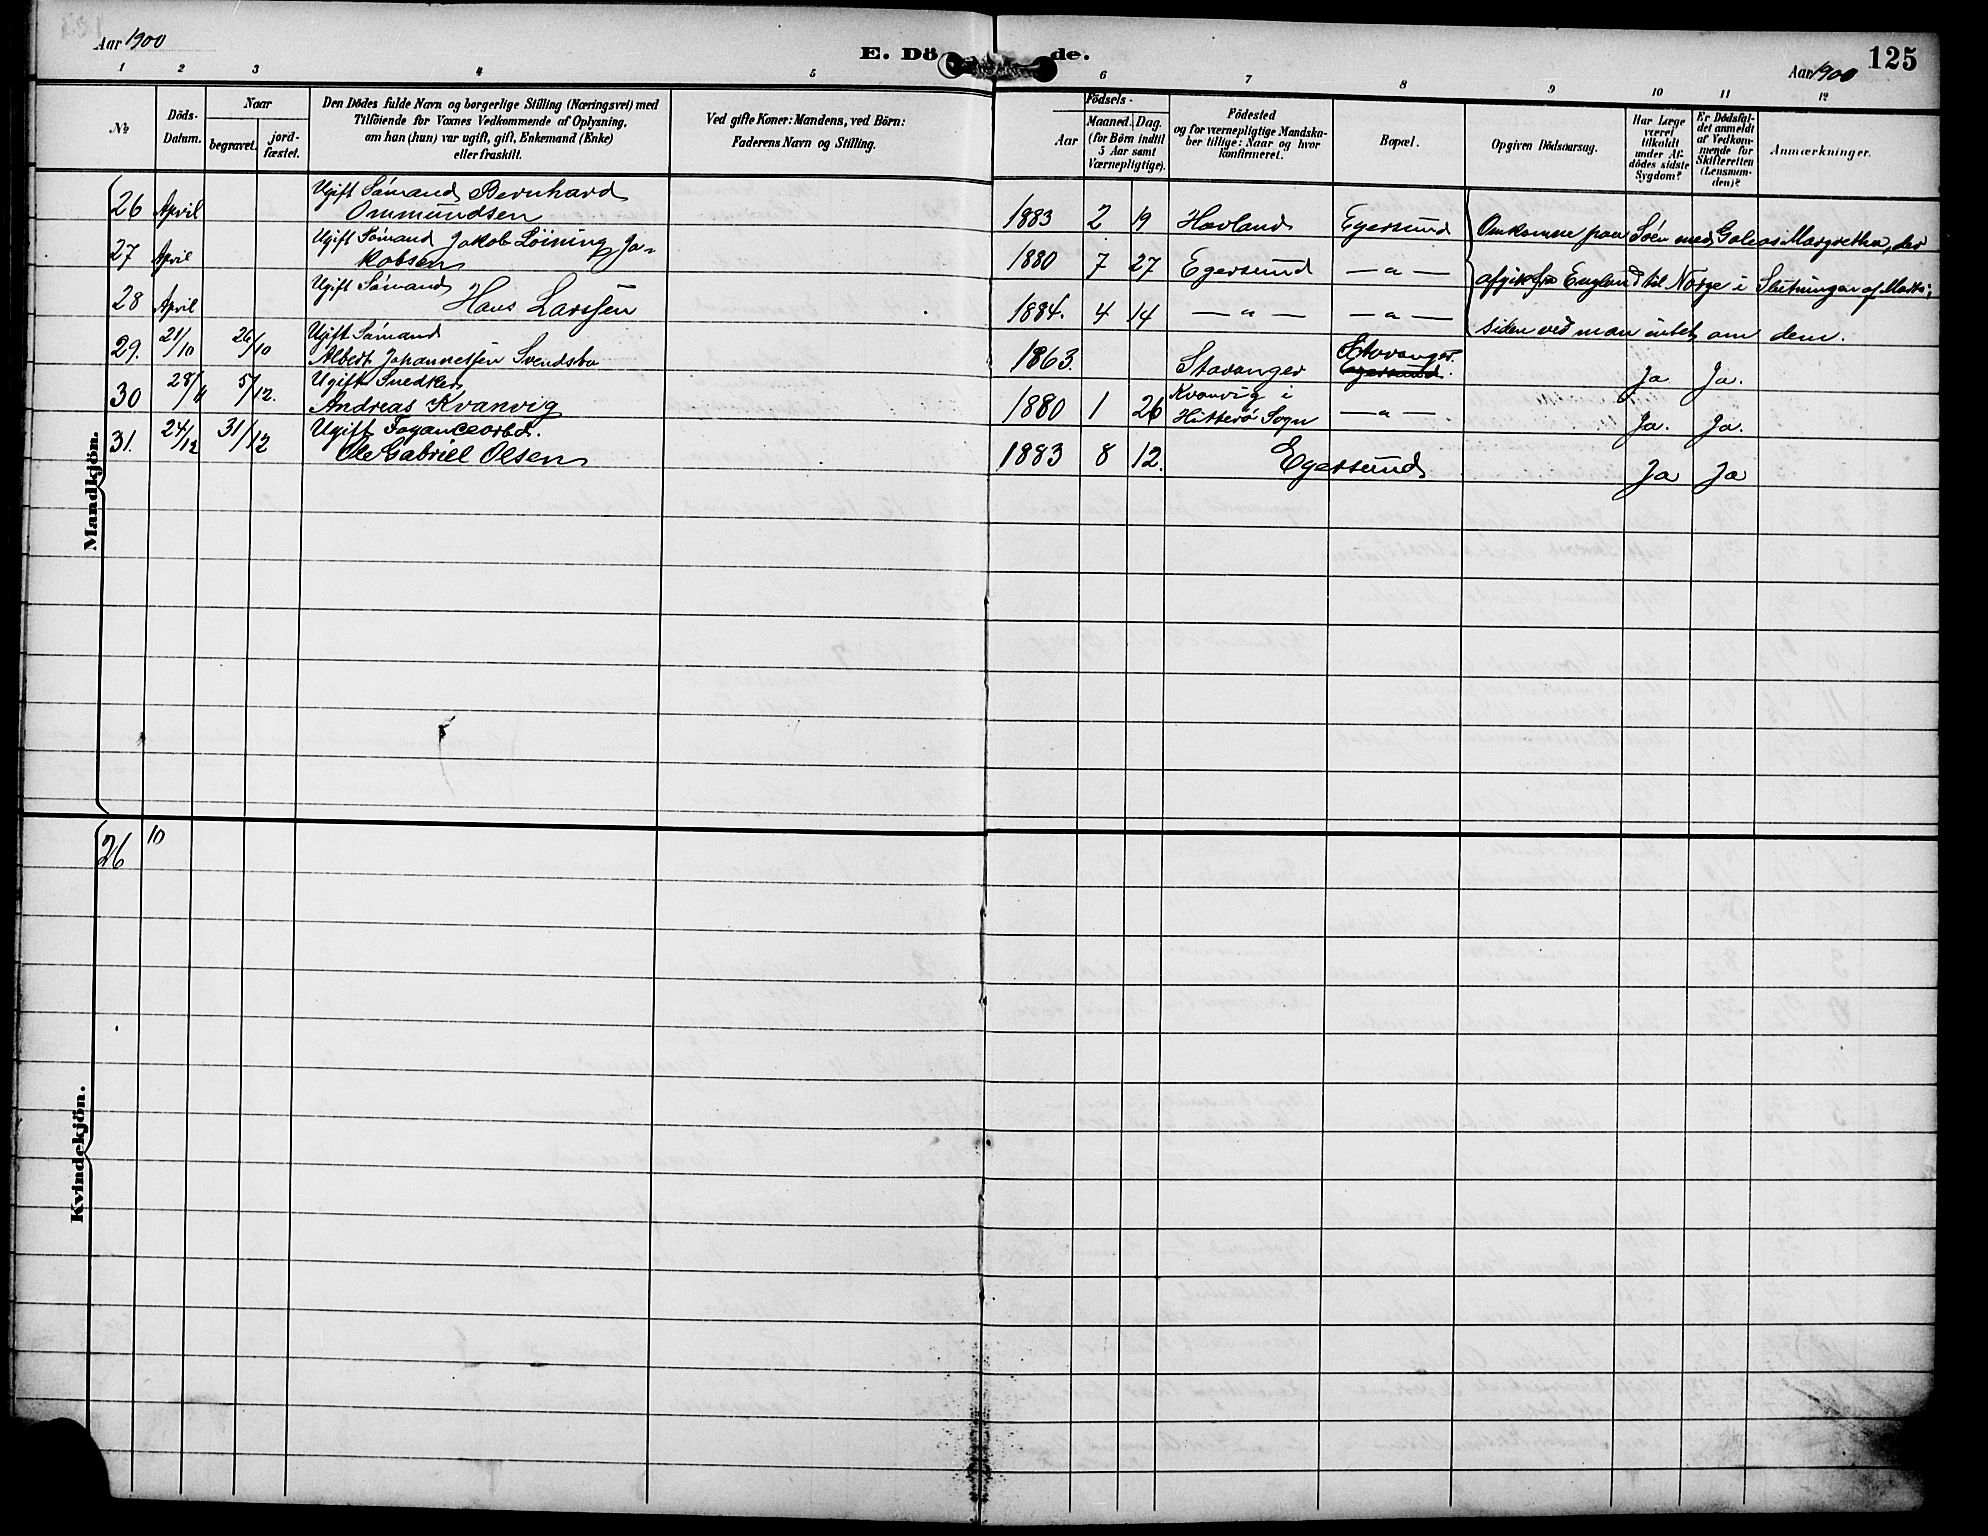 Aar 1900
E. Dö
de.
Aar 1900
125
1 2 3 4 5 6 7 8 9 10 11 12
No
Döds-
Datum.
Naar
begravet.
jord-
fæstet.
Den Dödes fulde Navn og borgerlige Stilling (Næringsvei) med
Tilföiende for Voxnes Vedkommende af Oplysning,
om han (hun) var ugift, gift, Enkemand (Enke)
eller fraskilt.
Ved gifte Koner: Mandens, ved Börn:
Faderens Navn og Stilling.
Födsels-
Aar
Maaned.
Dag.
(for Börn indtil
5 Aar samt
Værnepligtige).
Födested
og for værnepligtige Mandska-
ber tillige: Naar og hvor
konfirmeret.
Bopæl.
Opgiven Dödsaarsag.
Har Læge
været
tilkaldt
under Af-
dödes sidste
Sygdom?
Er Dödsfal-
det anmeldt
af Vedkom-
mende for
Skifteretten
(Lensman-
den)?
Anmærkninger.
Mandkjön.
26 April Ugift Sømand Bernhard
Ommundsen 1883 2 19 Havland Egersund Omkomne paa Søen med Galeas Margretha, der
27 April Ugift Sømand Jakob Loining Ja-
kobsen 1880 7 27 Egersund — " — afgik fra England til Norge i Slutningen af Marts;
28 April Ugift Sømand
Hans Larssen 1884. 4 14 — " — — " — siden ved man intet om dem.
29. 21/10 26/10 Ugift Sømand
Albert Johannessen Svendsbø 1863. Stavanger Stavanger. Egersund. Ja Ja.
30 28/11 5/12. Ugift Snedker
Andreas Kvanvig 1880 1 26 Kvanvig i
Hitterø Sogn — " — Ja. Ja.
31. 24/12 31/12 Ugift Fayancearbd.
Ole Gabriel Olsen 1883 8 12. Egersund Ja Ja
Kvindekjön.
26 10